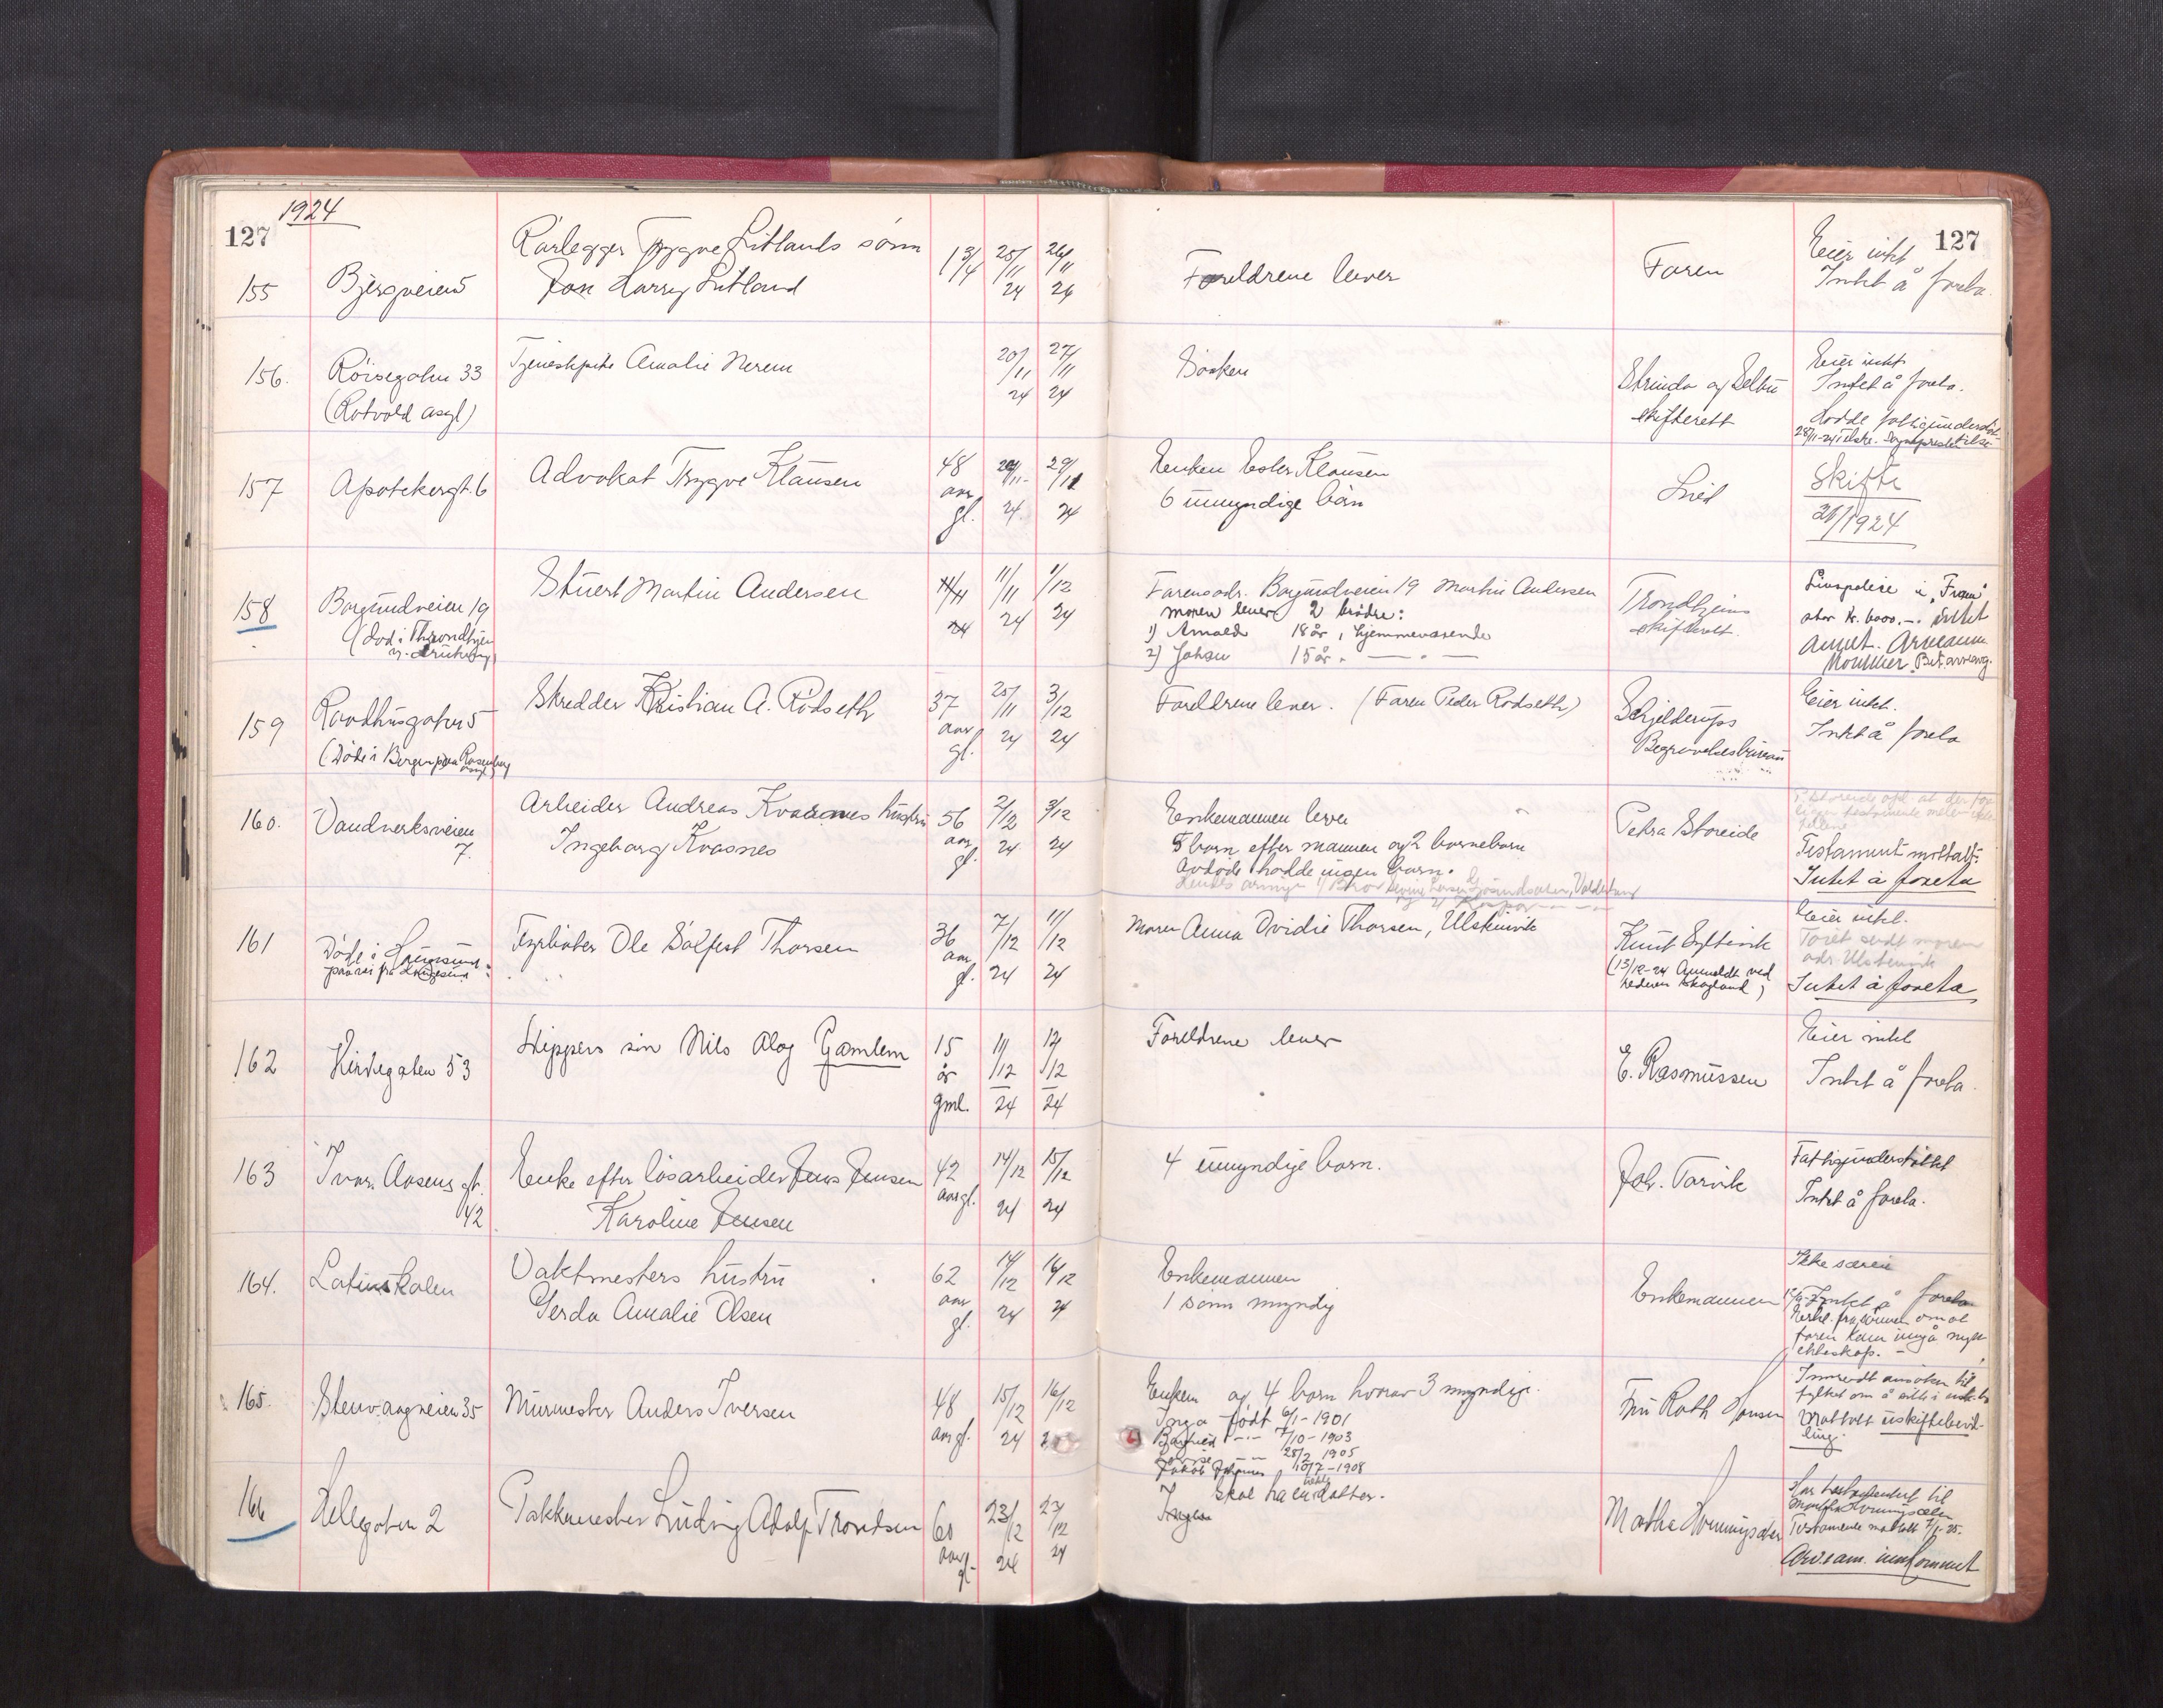 1924
127
127
155
Bjergveien 5
Rørlegger Trygve Litlands sønn
Jon Harry Litland
13/4
25/11 24
26/11 24
Foreldrene lever
Faren
Eier intet
Intet å foreta.
156.
Röisegaten 33
(Rotvold asyl)
Tjenestepike Amalie Nerem
20/11 24
27/11 24
Søsken
Strinda og Selbu
skifterett
Eier intet
Intet å foreta.
Hadde
157
Apotekergt. 6
Advokat Trygve Klausen
48
aar
gl.
24
29/11
24
Enken Ester Klausen
6 umyndige barn
Lied
Skifte
21/1924
158
Borgundveien 19
(död i Throndhjem
Stuert Martin Andersen
11/11 24
1/12 24
Farens adr. Borgundveien 19 Martin Andersen
moren lever 2 brødre:
1) Arnold 18 år, hjemmeværende
2) Johan 15 år. — " —
Trondhjems
skifterett
Livspolise i "Fram"
stor kr. 6000.-
159
Raadhusgaten 5
(Döde i Bergen paa Rosenberg
Skredder Kristian A. Rödseth
37
aar
gl.
25/11 24
3/12 24
Foreldrene lever. (Faren Peder Rödseth)
Schjelderups
Begravelsesbureau
Eier intet.
Intet å foreta
160.
Vandverksveien
7.
Arbeider Andreas Kvasnes hustru
Ingeborg Kvasnes
56
aar
gl.
2/12 24
3/12 24
Enkemannen lever
5 barn efter mannen og 2 barnebarn
Avdöde hadde ingen barn.
Petra Storeide
Testament mottatt.
Intet å foreta
161
Döde i
Fyrböter Ole Solfest Thorsen
36
aar
gl.
7/12 24
11/12 24
Moren Anna Ovidie Thorsen, Ulsteinvik
Knut Eltvik
(13/12-24 Anmeldt ved
Eier intet.
adr. Ulsteinvik
Intet å foreta
162
Kirkegaten 53
Skippers sön Nils Olav Gamlem
15
år
gml.
11/12 24
12/12 24
Foreldrene lever
E. Rasmussen
Eier intet
Intet å foreta.
163
Ivar Aasens gt.
42
Enke efter løsarbeider Jens Jensen
Karoline Jensen
42
aar gl.
14/12 24
15/12 24
4 umyndige barn.
Joh. Tarvik
Fattigunderstøttet
Intet å foreta.
164.
Latinskolen
Vaktmesters hustru
Gerda Amalie Olsen
62
aar
gl.
14/12 24
16/12 24
Enkemannen
1 sönn myndig
Enkemannen
Ikke særeie
Intet å foreta
faren kan inngå nytt
ekteskap. –
165.
Stenvaagveien 35
Murmester Anders Iversen
48
aar gl.
15/12 24
16/12
Enken og 4 barn hvorav 3 myndige.
Inga født 6/1-1901
7/10-1903
25/2 1905
Jakob Johannes 10/7-1908
Fru Roth Hansen
Innsendt ansöken til
fylket om å sitte i uskifte
Mottatt uskiftebevil-
ling.
166
Hellegaten 2
Pakkmester Ludvig Adolf Trondsen
60
aar
gl.
23/12 24
23/12 24
Ingen
Skal ha en datter.
Martha
Testamente mottatt
innkommet